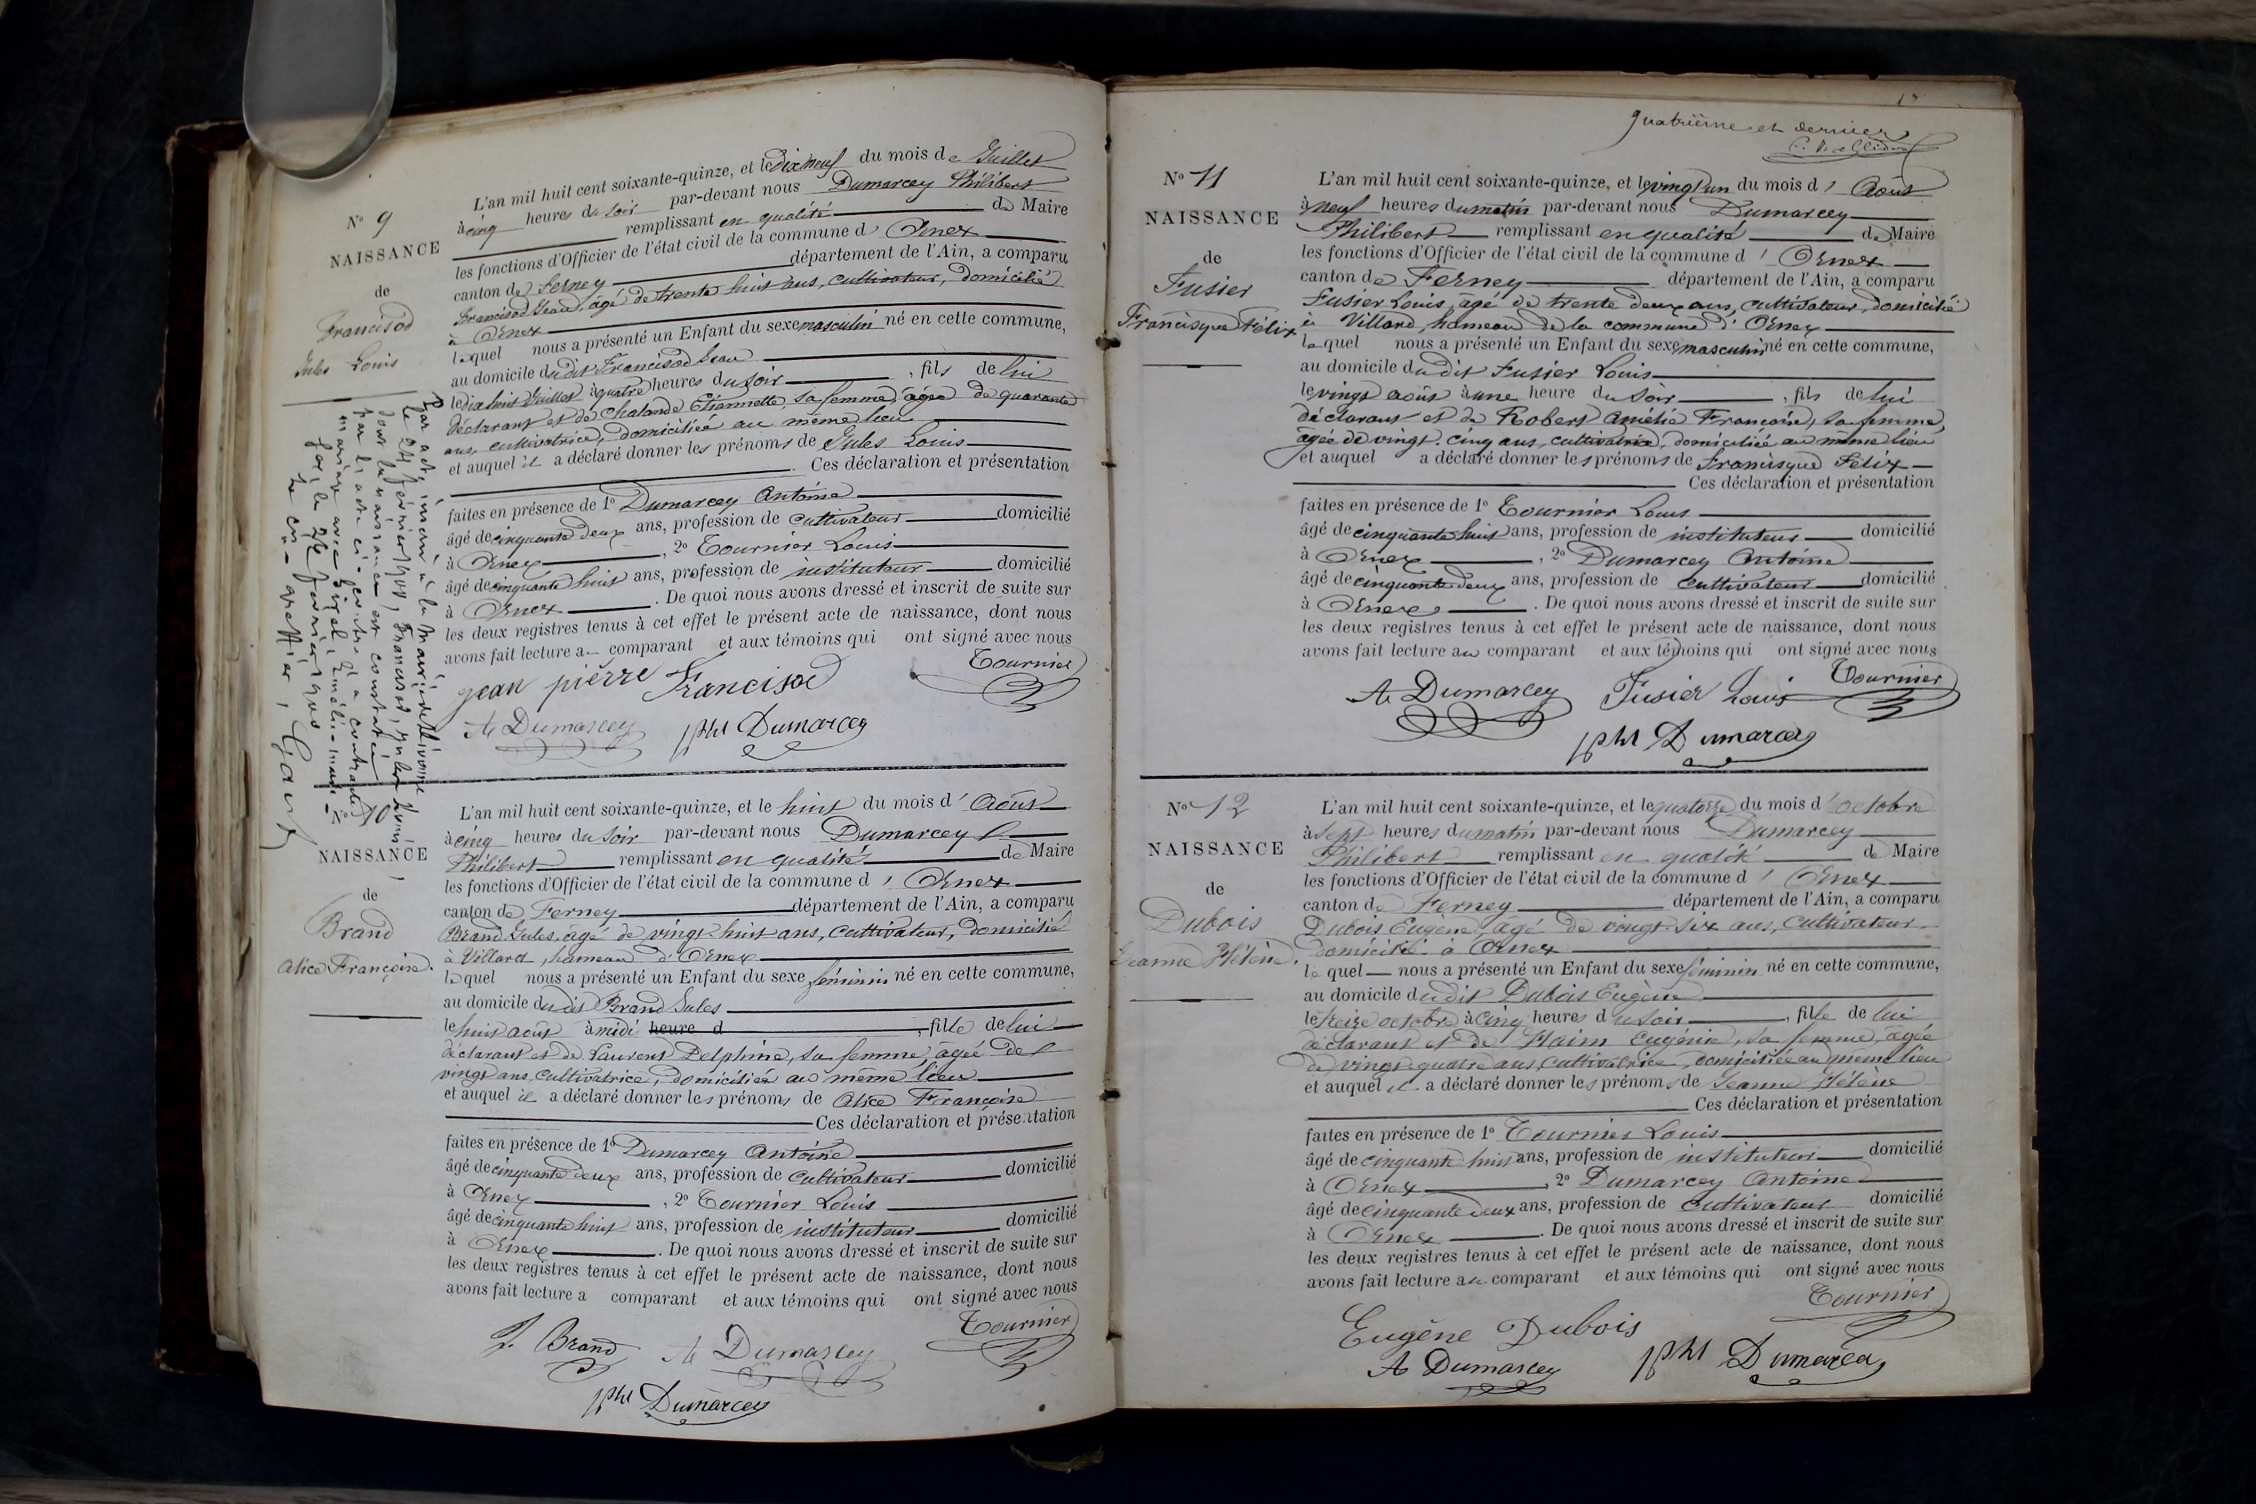 N° 9
NAISSANCE
de
Francisod
Jules Louis
L'an mil huit cent soixante-quinze, et le dix neuf du mois de Juillet
à cinq heures du soir par-devant nous Dumarcey Philibert
remplissant en qualité de Maire
les fonctions d'Officier de l'état civil de la commune d Ornex
canton de Ferney département de l'Ain, a comparu
Francisod Jean, âgé de trente huit ans, cultivateur, domicilié
à Ornex
lequel nous a présenté un Enfant du sexe masculin né en cette commune,
au domicile du dit Francisod Jean
le dix huit Juillet à quatre heures du soir, fils de lui
déclarant et de Chalande Etiennette, sa femme, âgée de quarante
ans, cultivatrice, domiciliée au même lieu
et auquel il a déclaré donner les prénoms de Jules Louis
Ces déclaration et présentation
faites en présence de 1° Dumarcey Antoine
âgé de cinquante deux ans, profession de cultivateur domicilié
à Ornex, 2° Tournier Louis
âgé de cinquante huit ans, profession de instituteur domicilié
à Ornex. De quoi nous avons dressé et inscrit de suite sur
les deux registres tenus à cet effet le présent acte de naissance, dont nous
avons fait lecture au comparant et aux témoins qui ont signé avec nous
Tournier
jean pierre Francisod
At Dumarcey pht Dumarcey
Par acte inscrit à la Mairie de Divonne
le 24 février Francisod, Jules Louis,
dont la naissance est constatée
par l'acte ci-contre, a contracté
mariage avec
le 26 février
Le greffier,
N° 10
NAISSANCE
de
Brand
Alice Françoise.
L'an mil huit cent soixante-quinze, et le huit du mois d' Août
à cinq heures du soir par-devant nous Dumarcey
Philibert remplissant en qualité de Maire
les fonctions d'Officier de l'état civil de la commune d ' Ornex
canton de Ferney département de l'Ain, a comparu
Brand Jules, âgé de vingt huit ans, cultivateur, domicilié
à Villard, hameau d'Ornex
lequel nous a présenté un Enfant du sexe féminin né en cette commune,
au domicile du dit Brand Jules
le huit août à midi heure d, fille de lui
déclarant et de Laurent Delphine, sa femme, âgée de
vingt ans, cultivatrice, domiciliée au même lieu
et auquel il a déclaré donner les prénoms de Alice Françoise
Ces déclaration et présentation
faites en présence de 1° Dumarcey Antoine
âgé de cinquante deux ans, profession de cultivateur domicilié
à Ornex, 2° Tournier Louis
âgé de cinquante huit ans, profession de instituteur domicilié
à Ornex. De quoi nous avons dressé et inscrit de suite sur
les deux registres tenus à cet effet le présent acte de naissance, dont nous
avons fait lecture a comparant et aux témoins qui ont signé avec nous
Tournier
J. Brand At Dumarcey
pht Dumarcey
quatrième et dernier
N° 11
NAISSANCE
de
Fusier
Francisque Félix
L'an mil huit cent soixante-quinze, et le vingt un du mois d' Août
à neuf heures du matin par-devant nous Dumarcey
Philibert remplissant en qualité de Maire
les fonctions d'Officier de l'état civil de la commune d' Ornex
canton de Ferney département de l'Ain, a comparu
Fusier Louis, âgé de trente deux ans, cultivateur, domicilié
à Villard, hameau de la commune d'Ornex
lequel nous a présenté un Enfant du sexe masculin né en cette commune,
au domicile du dit Fusier Louis
le vingt août à une heure du soir, fils de lui
déclarant et de Robert Amélie Françoise, sa femme,
âgée de vingt-cinq ans, cultivatrice, domiciliée au même lieu
et auquel a déclaré donner les prénoms de Francisque Félix
Ces déclaration et présentation
faites en présence de 1° Tournier Louis
âgé de cinquante huit ans, profession de instituteur domicilié
à Ornex, 2° Dumarcey Antoine
âgé de cinquante deux ans, profession de cultivateur domicilié
à Ornex. De quoi nous avons dressé et inscrit de suite sur
les deux registres tenus à cet effet le présent acte de naissance, dont nous
avons fait lecture au comparant et aux témoins qui ont signé avec nous
At Dumarcey Fusier Louis Tournier
pht Dumarcey
N° 12
NAISSANCE
de
Dubois
Jeanne Hélène.
L'an mil huit cent soixante-quinze, et le quatorze du mois d' octobre
à sept heures du matin par-devant nous Dumarcey
Philibert remplissant en qualité de Maire
les fonctions d'Officier de l'état civil de la commune d ' Ornex
canton de Ferney département de l'Ain, a comparu
Dubois Eugène, âgé de vingt-six ans, cultivateur
domicilié à Ornex
lequel nous a présenté un Enfant du sexe féminin né en cette commune,
au domicile du dit Dubois Eugène
le treize octobre à cinq heures du soir, fille de lui
déclarant et de Haim Eugénie, sa femme, âgée
de vingt-quatre ans, cultivatrice, domiciliée au même lieu
et auquel il a déclaré donner les prénoms de Jeanne Hélène
Ces déclaration et présentation
faites en présence de 1° Tournier Louis
âgé de cinquante huit ans, profession de instituteur domicilié
à Ornex, 2° Dumarcey Antoine
âgé de cinquante deux ans, profession de cultivateur domicilié
à Ornex. De quoi nous avons dressé et inscrit de suite sur
les deux registres tenus à cet effet le présent acte de naissance, dont nous
avons fait lecture au comparant et aux témoins qui ont signé avec nous
Tournier
Eugène Dubois
At Dumarcey pht Dumarcey